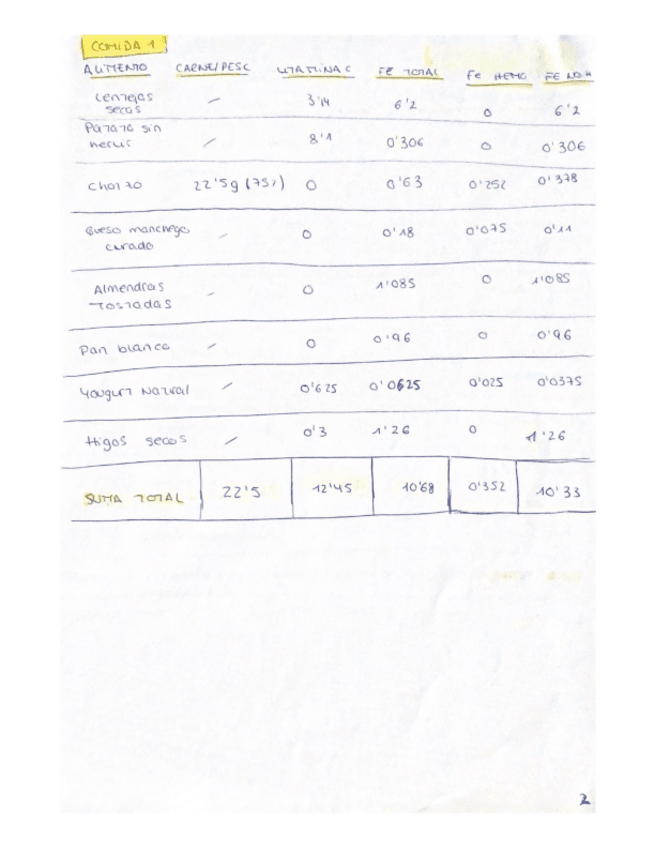 COMIDA 1
ALIMENTO CARNE/PESC VITAMINA C FE TOTAL Fe HEMO FE NO H
Lentejas secas / 3'14 6'2 0 6'2
Patata sin hervir / 8'1 0'306 0 0'306
Chorizo 22'5g (75%) 0 0'63 0'252 0'378
Queso manchego curado / 0 0'18 0'075 0'11
Almendras Tostadas / 0 1'085 0 1'085
Pan blanco / 0 0'96 0 0'96
Yougurt Natural / 0'625 0'0625 0'025 0'0375
Higos secos / 0'3 1'26 0 1'26
SUMA TOTAL 22'5 12'45 10'68 0'352 10'33
2